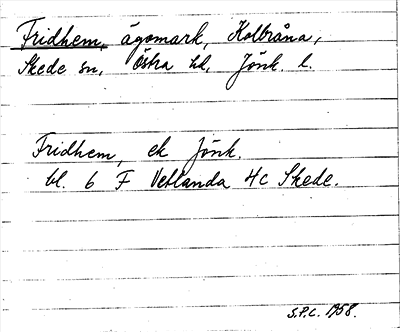 Fridhem, ägomark, Kolbråna,
Skede sn, Östra hd, Jönk. l.
Fridhem, ek Jönk.
bl. 6 F Vetlanda 4c Skede.
S.P.L. 1958.